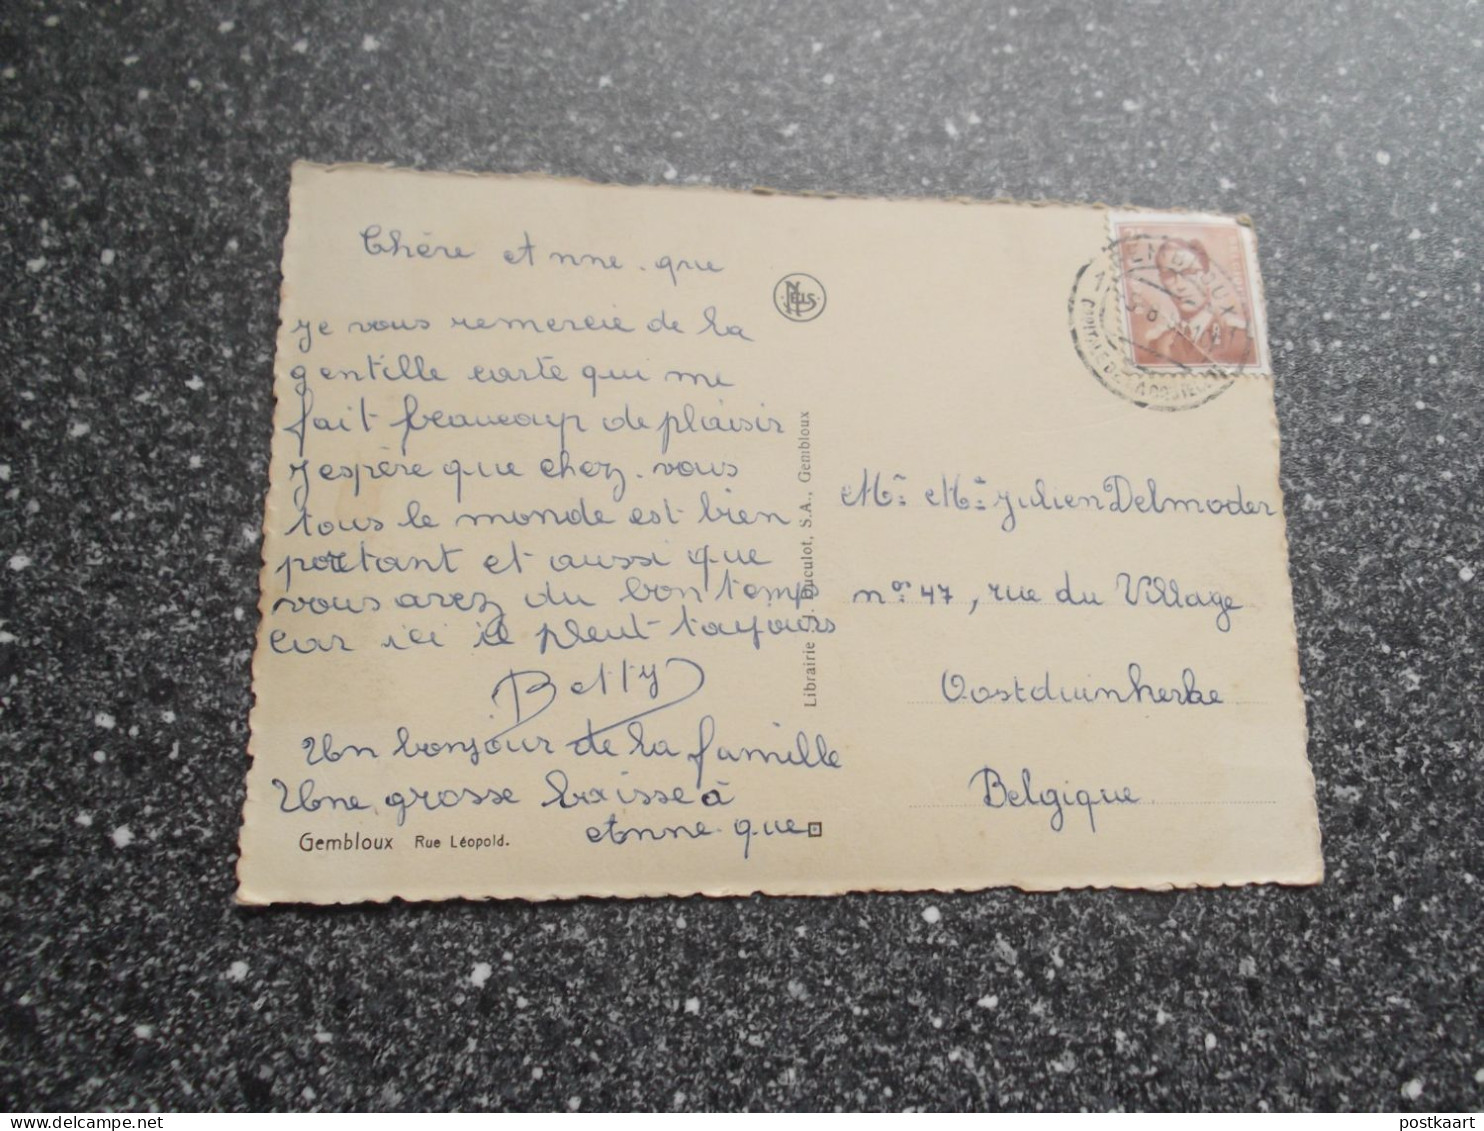 Chère Anne. que
Je vous remercie de la
gentille carte qui me
fait beaucoup de plaisir
J'espère que chez. vous
tous le monde est bien
portant et aussi que
vous avez du bon temps
car ici il pleut toujours
Betty
Un bonjour de la famille
Une grosse baisse à
Anne. que
Gembloux Rue Léopold.
NELS
Librairie J. Duculot, S.A., Gembloux
GEMBLOUX
Mr. Me. Julien Delmoder
no. 47, rue du Village
Oostduinkerke
Belgique
postkaart